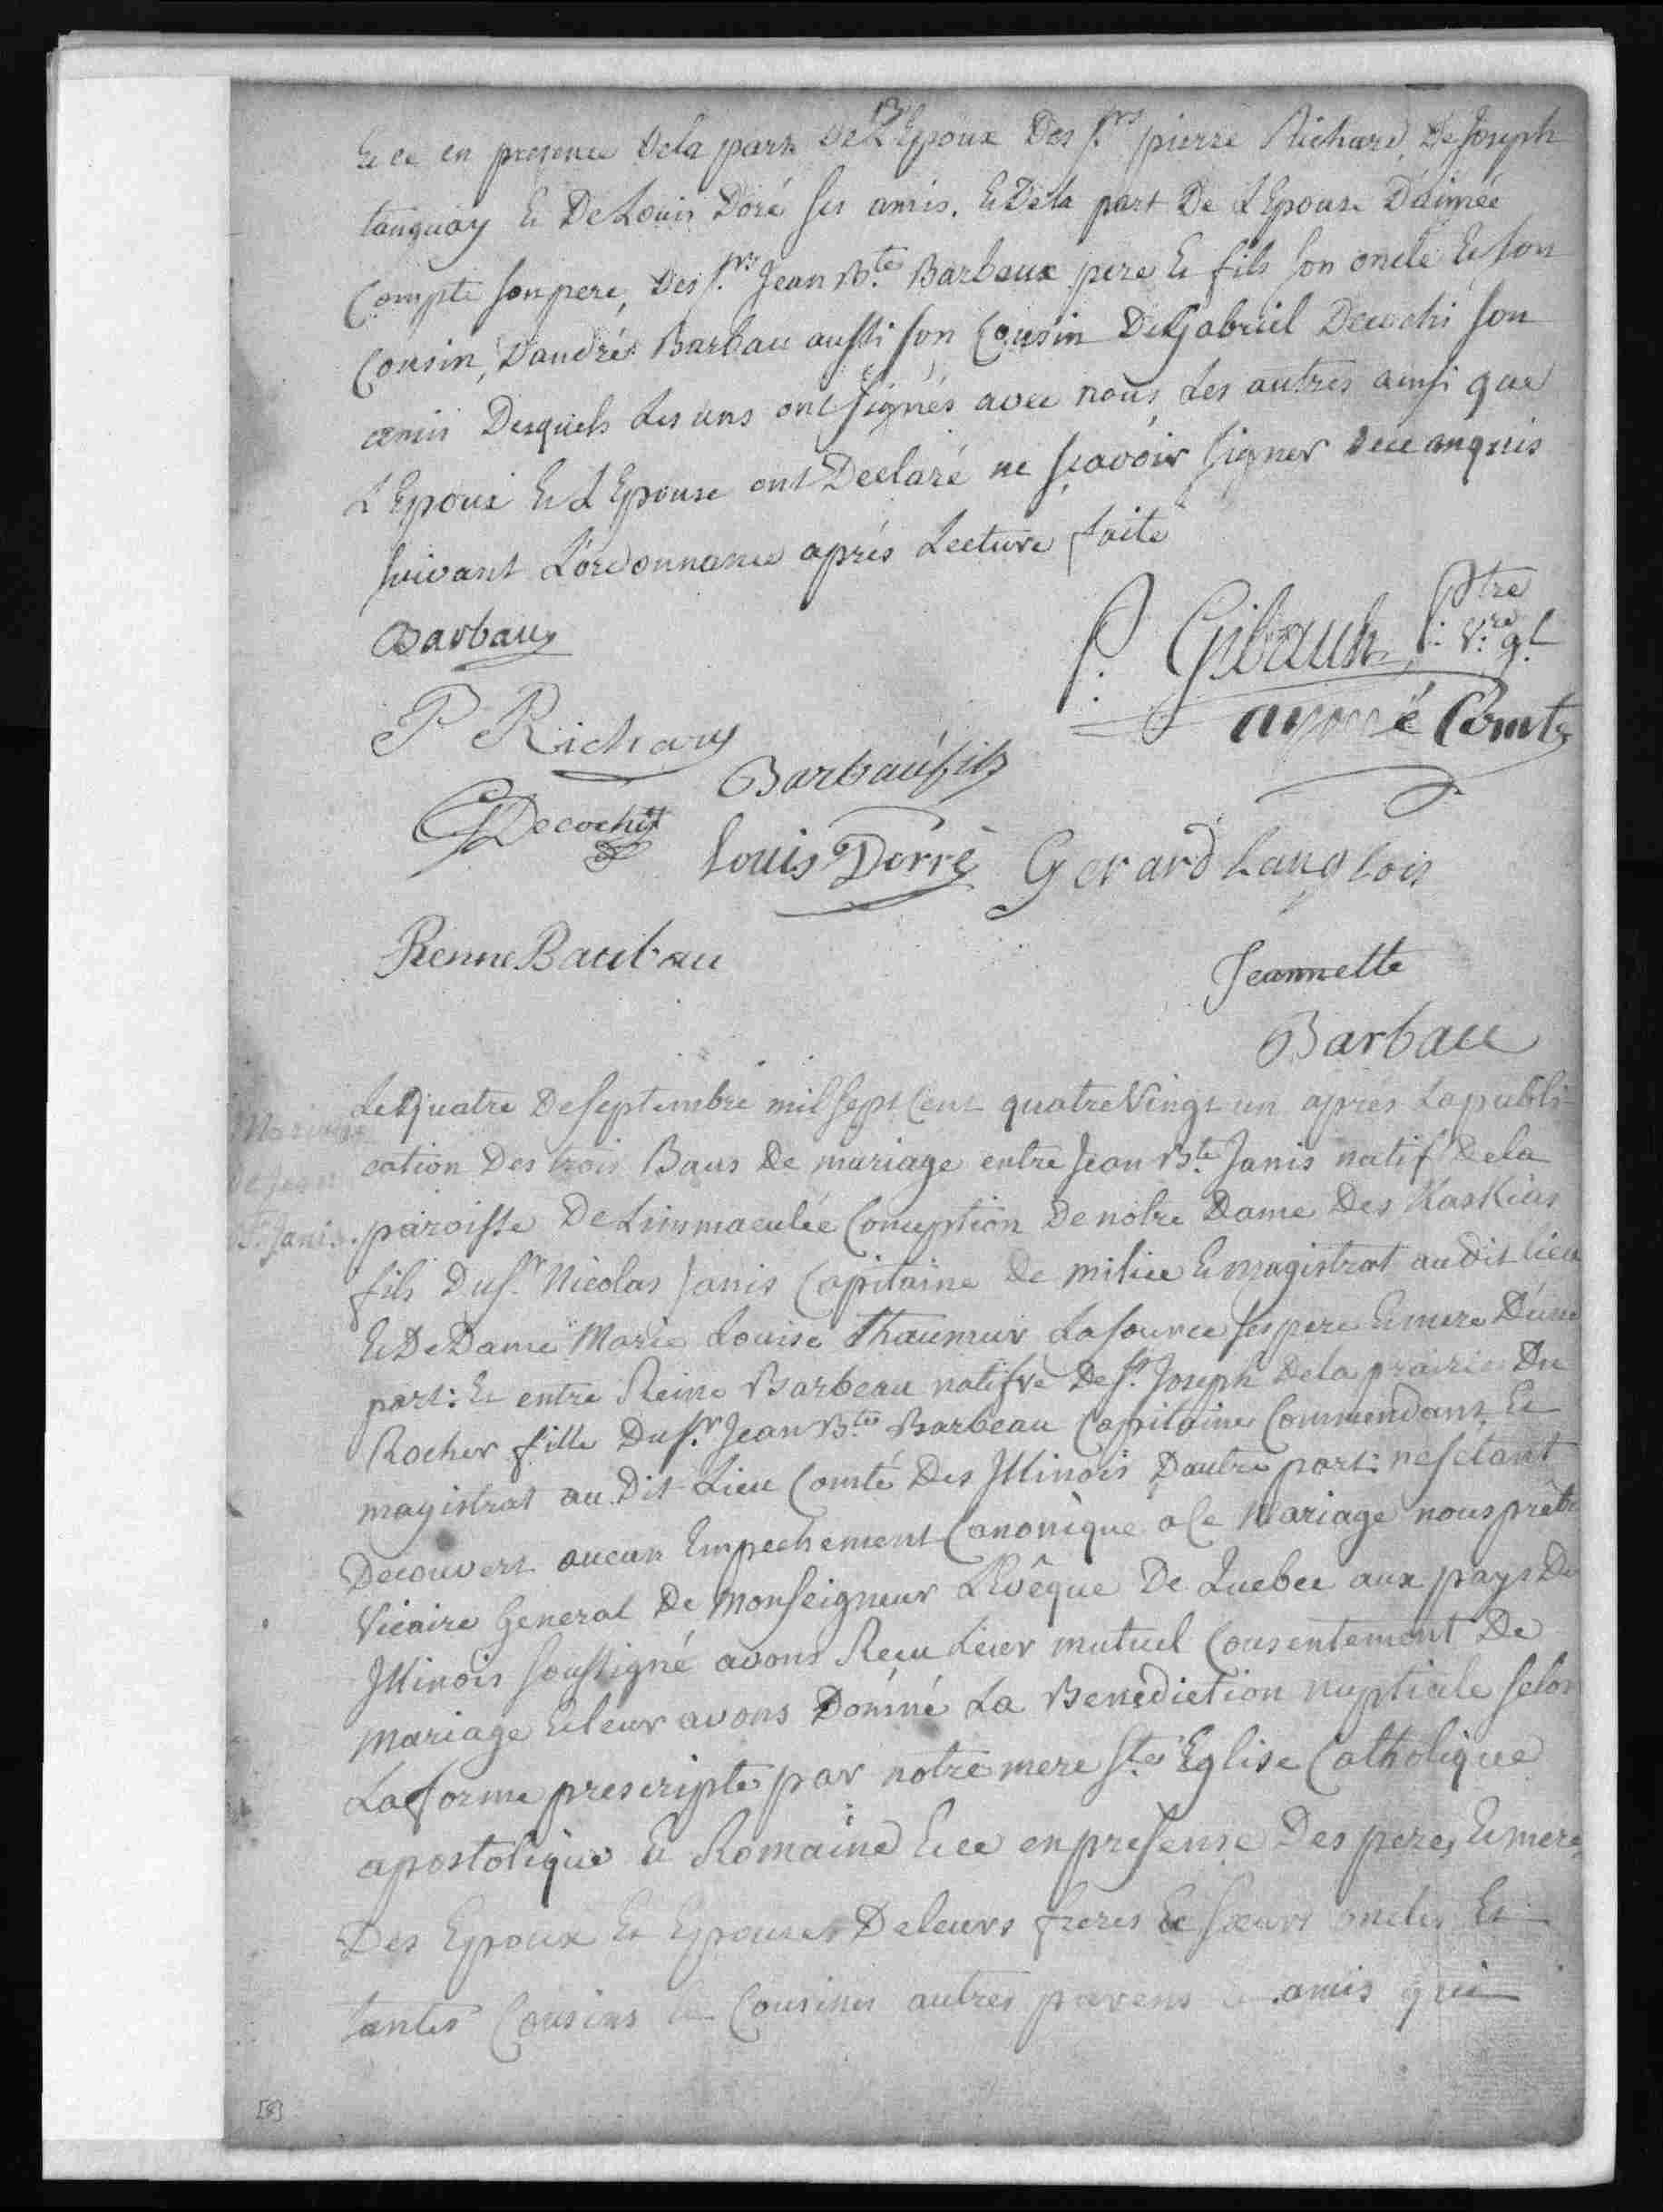 13
Et ce en presence Dela part De L'Epoux Des Srs pierre Richard, De Joseph
tanguay Et De Louis Doré ses amis. Et De la part De L'Epouse D'aimée
Compte son pere, Des Srs Jean Bte Barbeaux pere Et fils son oncle Et son
Cousin, D'andrés Barbau aussi son Cousin De Gabriel Decochi son
amis Desquels Les uns ont signés avec nous Les autres ainsi que
L'Epoux Et L'Epouse ont Declaré ne sçavoir signer De ce enquis
suivant L'ordonnance aprés Lecture faite
Barbau
P. Gibault Ptre
V.re g.l
P Richard
aymé Comte
Barbau fils
G Decochi
Louis Dorré
Gerard Langlois
Renne Baubau
Jeannette
Barbau
Mariage
De Jean
Bte Janis.
Le Quatre De Septembre mil Sept Cent quatre Vingt un aprés La publi-
cation Des trois Bans De mariage entre Jean Bte Janis natif Dela
paroisse De L'immaculée Conception De notre Dame Des Kaskias
fils Du Sr Nicolas Janis Capitaine De milice Et magistrat au dit lieu
Et De Dame Marie Louise Thaumur Lasource ses pere Et mere D'une
part: Et entre Reine Barbeau natifve De St Joseph Dela prairie Du
Rocher fille Du Sr Jean Bte Barbeau Capitaine Commendant Et
magistrat au Dit Lieu Comté Des Illinois D'autre part: ne s'etant
Decouvert aucun Empechement Canonique a Ce Mariage nous prêtre
Vicaire General De Monseigneur L'Evêque De Quebec aux pays Des
Illinois soussigné avons Reçu Leur mutuel Consentement De
Mariage Et leur avons Donné La Benediction nuptiale selon
La forme prescripte par notre mere Ste Eglise Catholique
apostolique Et Romaine Et ce en presense Des peres Et meres
Des Epoux Et Epouses De leurs freres Et soeurs oncles Et
tantes Cousins Et Cousines autres parens Et amis qui
[8]